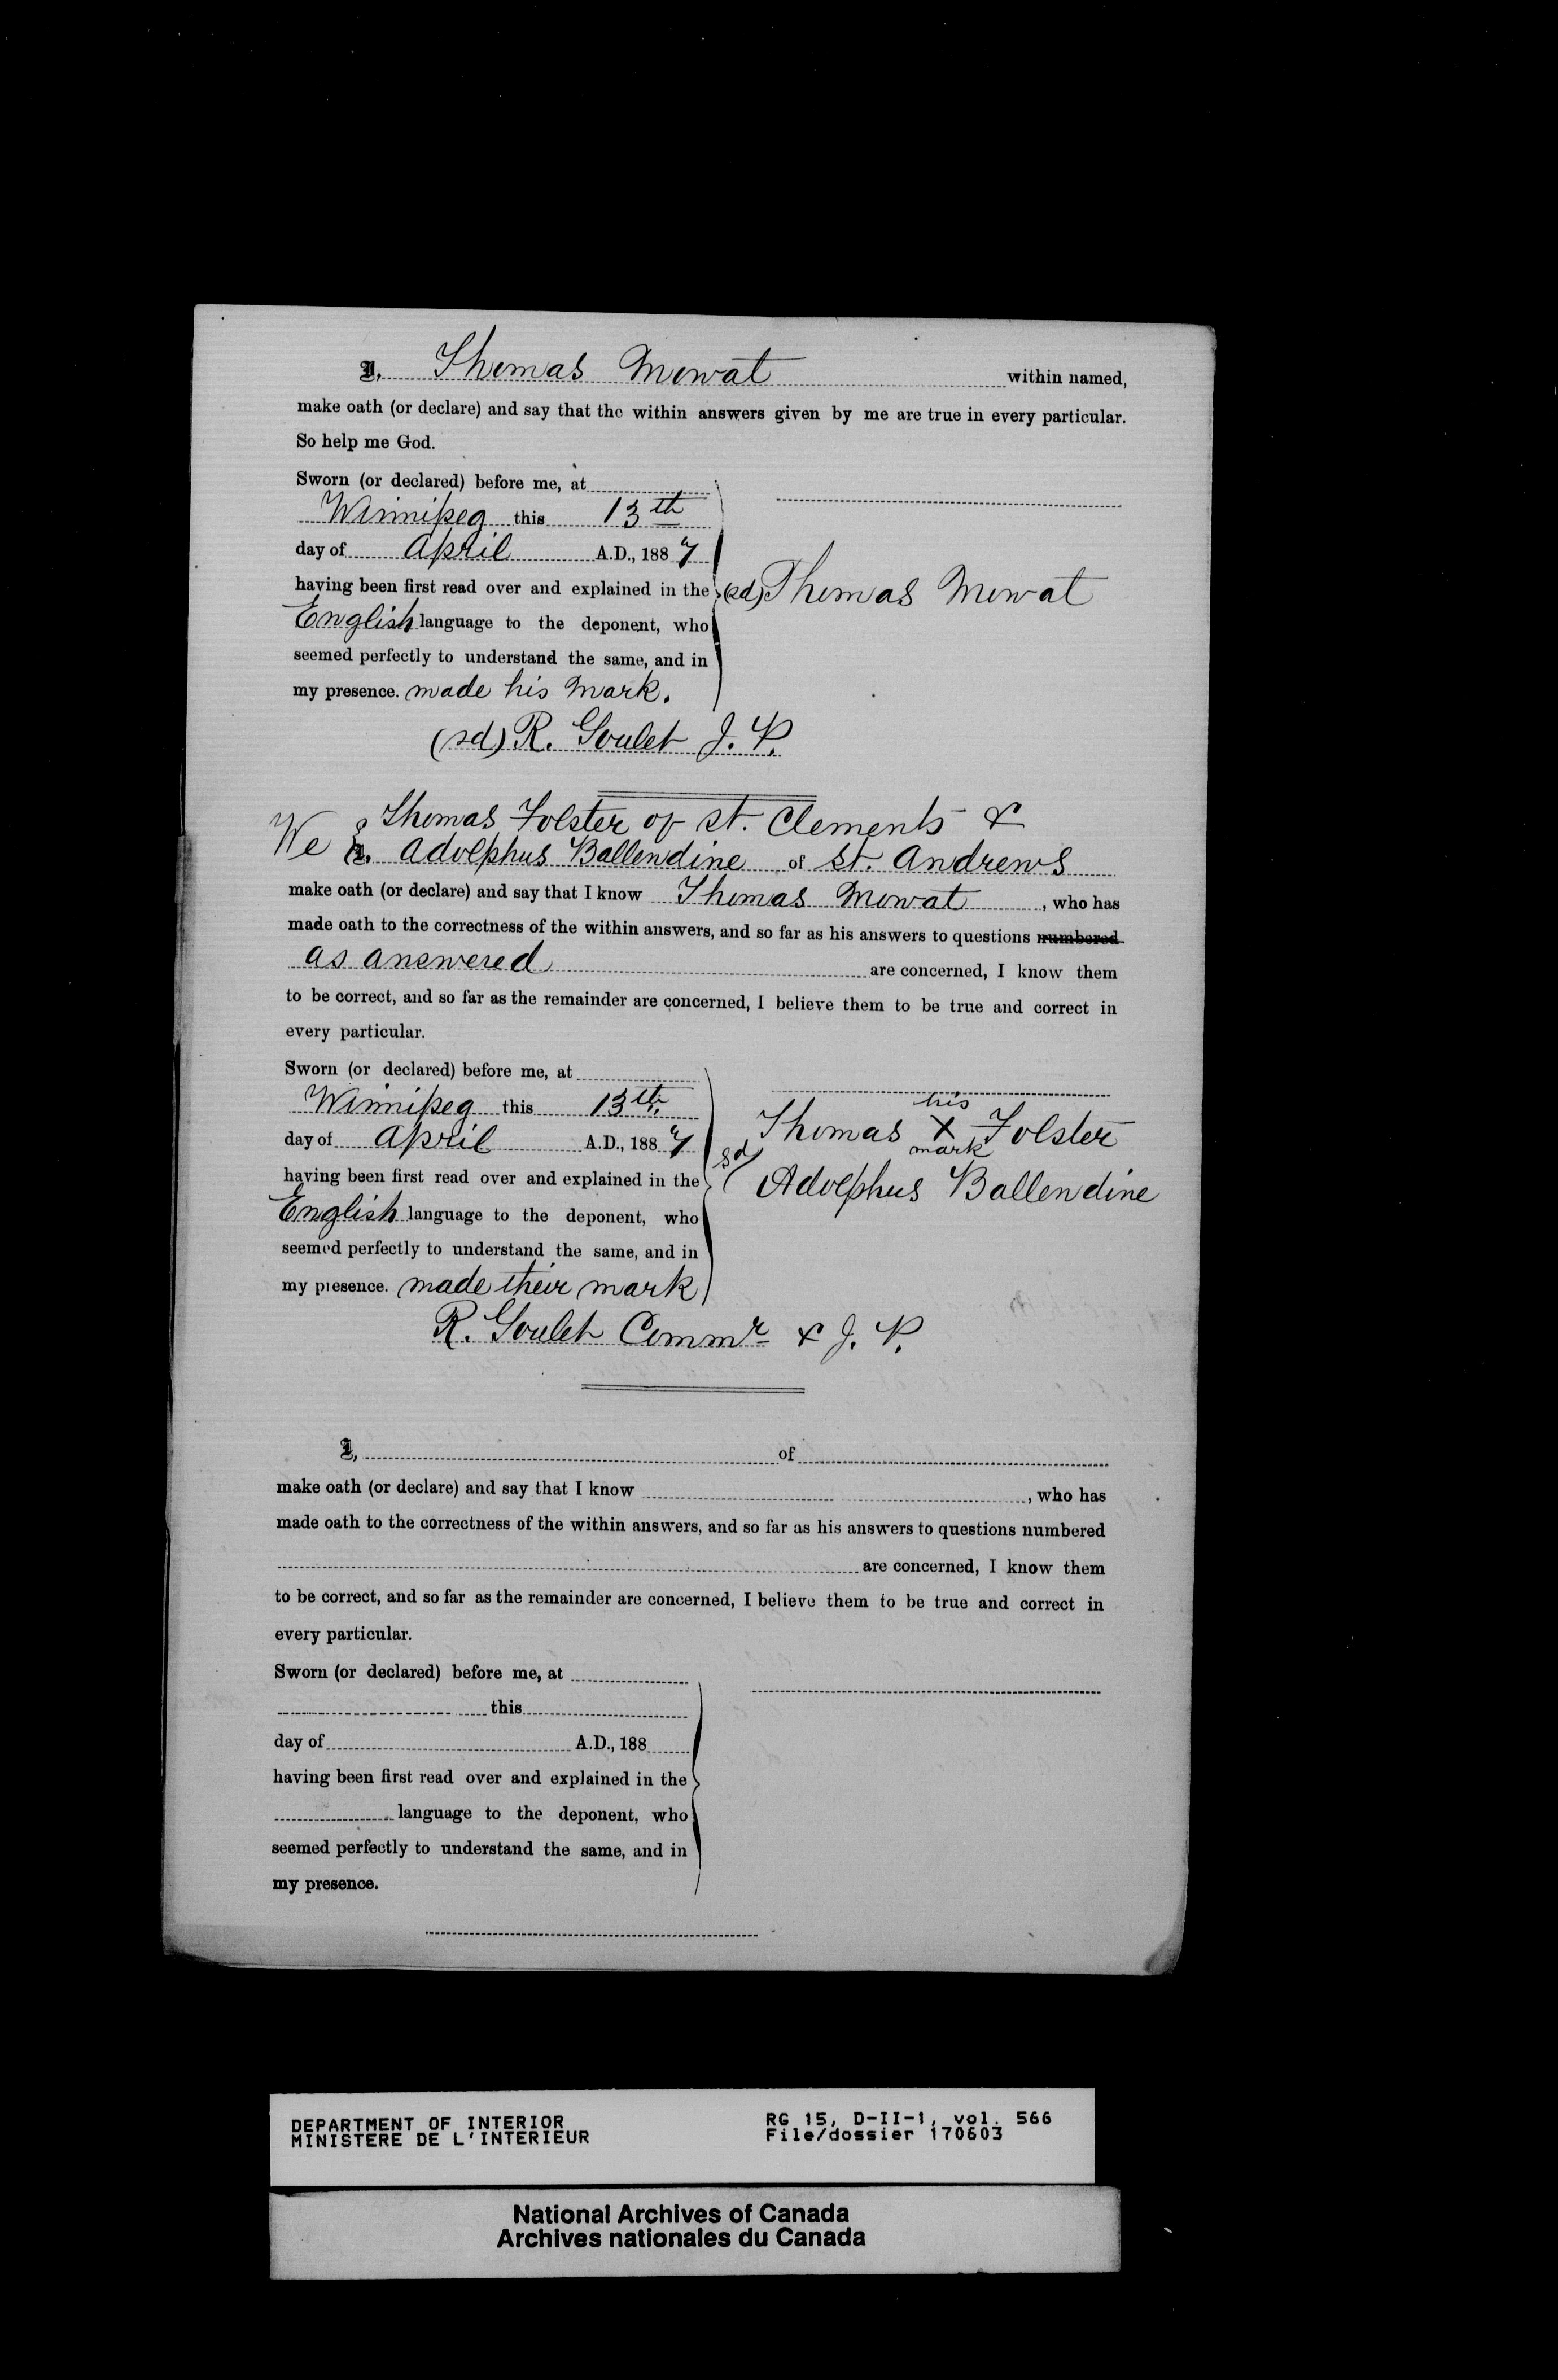 I, Thomas Mowat within named,
make oath (or declare) and say that the within answers given by me are true in every particular.
So help me God.
Sworn (or declared) before me, at
Winnipeg this 13th
day of April A.D., 1887
having been first read over and explained in the (sd) Thomas Mowat
English language to the deponent, who
seemed perfectly to understand the same, and in
my presence. made his mark.
(sd) R. Goulet J. P.
Thomas Folster of St. Clements &
We I, Adolphus Ballendine of St. Andrews
make oath (or declare) and say that I know Thomas Mowat, who has
made oath to the correctness of the within answers, and so far as his answers to questions numbered
as answered are concerned, I know them
to be correct, and so far as the remainder are concerned, I believe them to be true and correct in
every particular.
Sworn (or declared) before me, at
Winnipeg this 13th
his
day of April A.D., 1887 sd Thomas X Folster
mark
having been first read over and explained in the Adolphus Ballendine
English language to the deponent, who
seemed perfectly to understand the same, and in
my presence. made their mark
R. Goulet Commr & J. P.
I, of
make oath (or declare) and say that I know , who has
made oath to the correctness of the within answers, and so far as his answers to questions numbered
are concerned, I know them
to be correct, and so far as the remainder are concerned, I believe them to be true and correct in
every particular.
Sworn (or declared) before me, at
this
day of A.D., 188
having been first read over and explained in the
language to the deponent, who
seemed perfectly to understand the same, and in
my presence.
DEPARTMENT OF INTERIOR RG 15, D-II-1, vol. 566
MINISTERE DE L'INTERIEUR File/dossier 170603
National Archives of Canada
Archives nationales du Canada